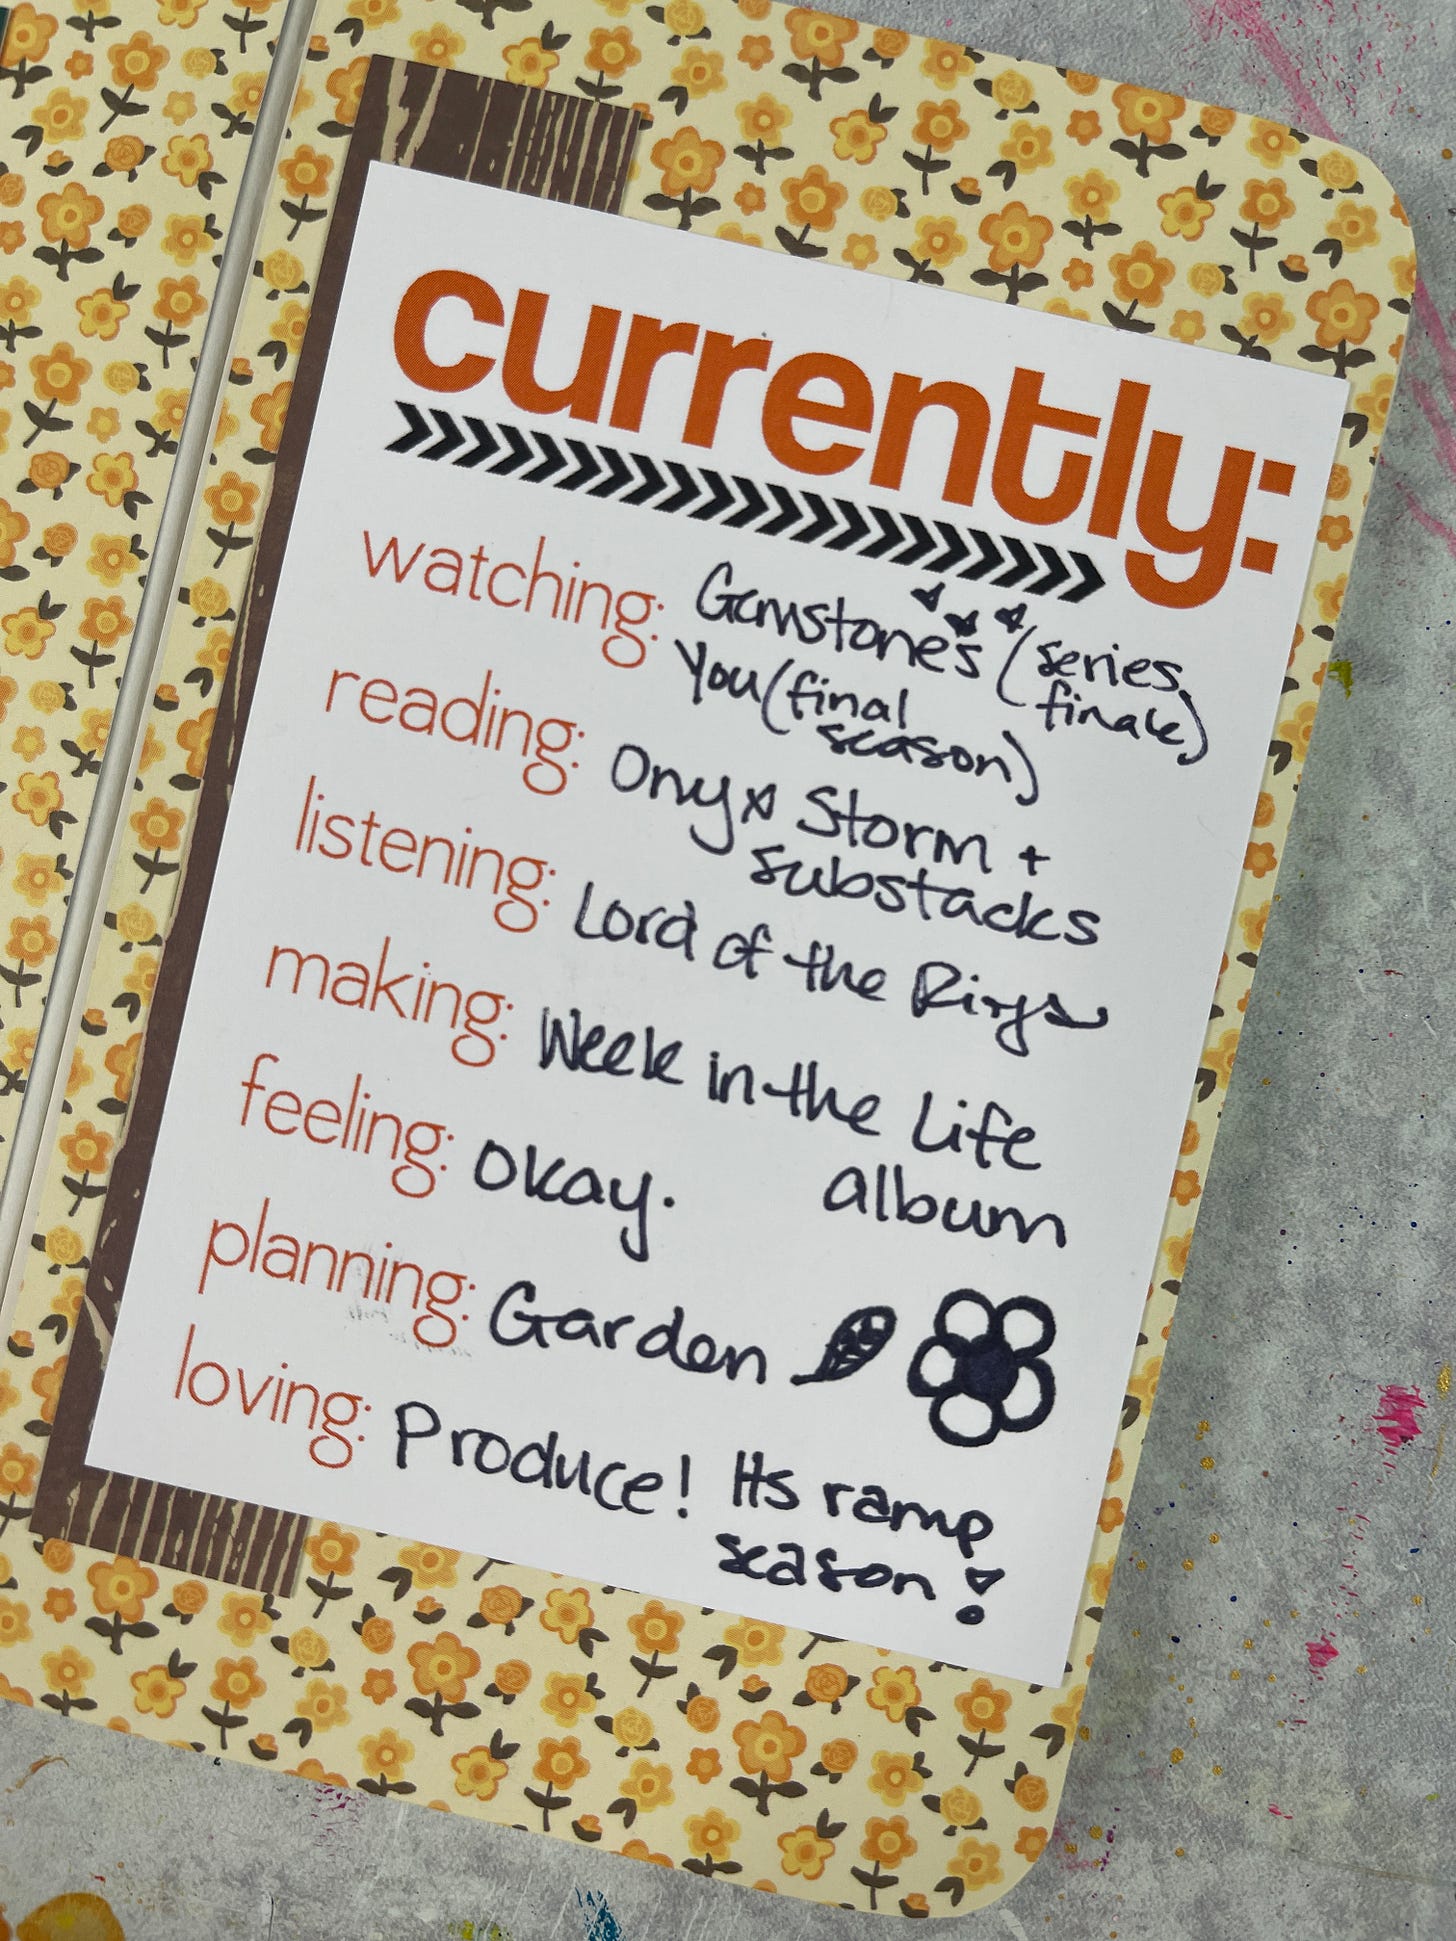 currently:
watching: Gemstones (series finale)
You (final season)
reading: Onyx Storm +
substacks
listening: Lord of the Rings
making: Week in the Life
album
feeling: okay.
planning: Garden
loving: Produce! Its ramp
season!